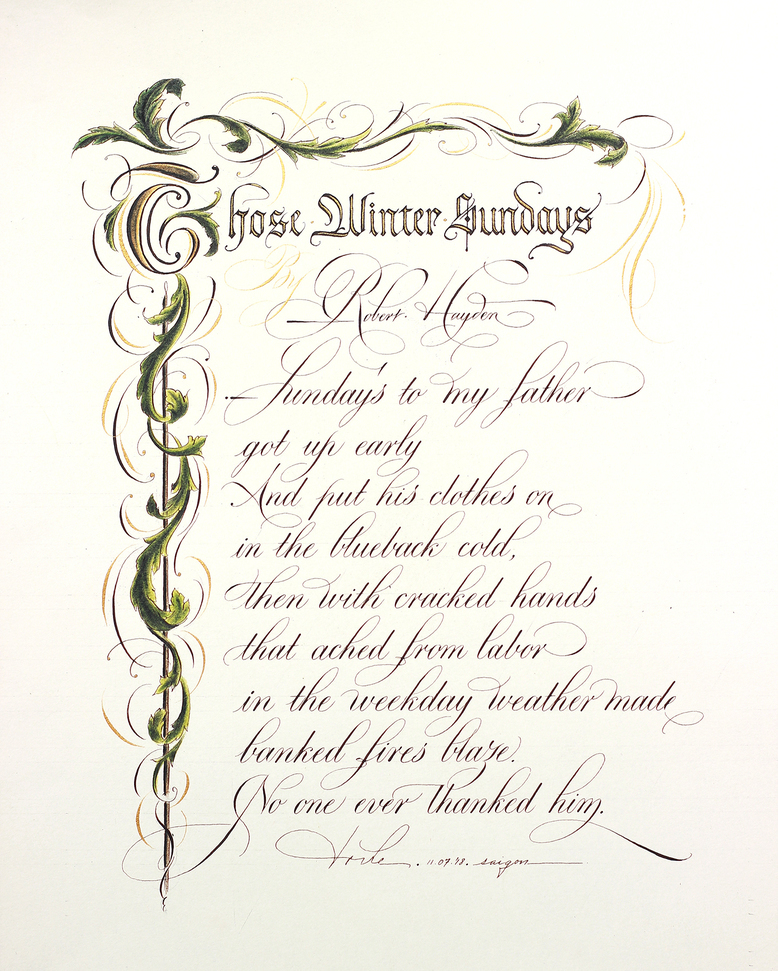 Those Winter Sundays
By
Robert Hayden
Sunday's to my father
got up early
And put his clothes on
in the blueback cold,
then with cracked hands
that ached from labor
in the weekday weather made
banked fires blaze.
No one ever thanked him.
. saigon